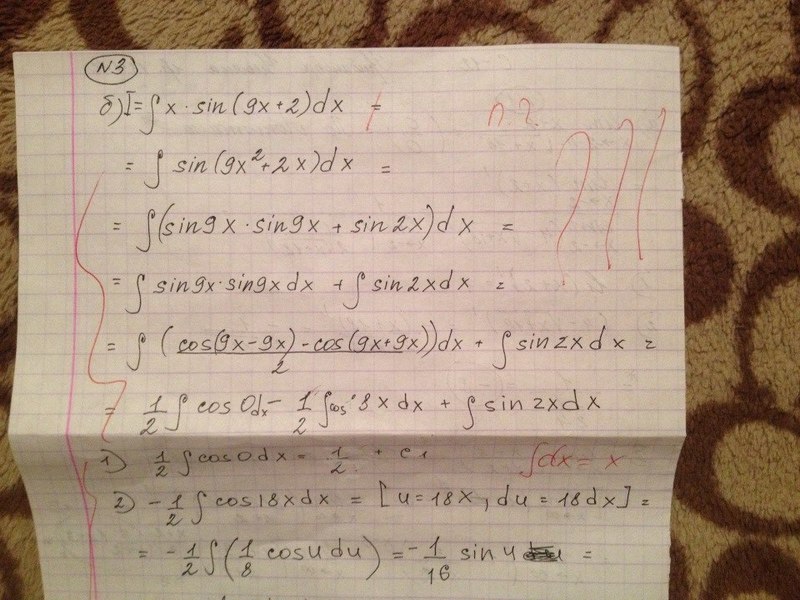 N3
б) I = ∫ x · sin (9x + 2) dx =
= ∫ sin (9x² + 2x) dx =
= ∫ (sin 9x · sin 9x + sin 2x) dx =
= ∫ sin 9x · sin 9x dx + ∫ sin 2x dx =
= ∫ ( (cos(9x - 9x) - cos(9x + 9x)) / 2 ) dx + ∫ sin 2x dx =
= 1/2 ∫ cos 0 dx - 1/2 ∫ cos 18x dx + ∫ sin 2x dx
1) 1/2 ∫ cos 0 dx = 1/2 + C1
∫ dx = x
2) - 1/2 ∫ cos 18x dx = [u = 18x, du = 18 dx] =
= - 1/2 ∫ (1/8 cos u du) = - 1/16 sin u =